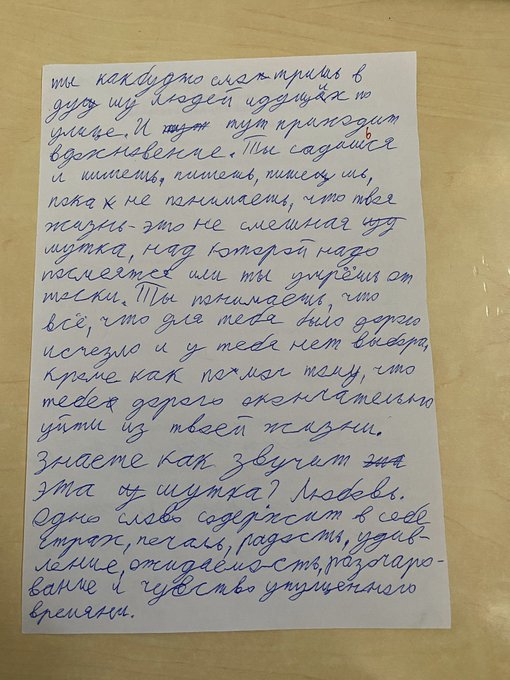 ты какбуджо смотришь в
душу людей идущих по
улице. И тут приходит
вдохновение. Ты садишься
и пишешь, пишешь, пишешь,
пока не понимаешь, что твоя
жизнь-это не смешная
шутка, над которой надо
посмеятся или ты умрёшь от
тоски. Ты понимаешь, что
всё, что для тебя было дорого
исчезло и у тебя нет выбора,
кроме как помоч тому, что
тебе дорого окончательно
уйти из твоей жизни.
Знаете как звучит
эта шутка? Любовь.
Одно слово содержит в себе
страх, печаль, радость, удив-
ление, ожидаемость, разочаро-
вание и чувство упущенного
времяни.